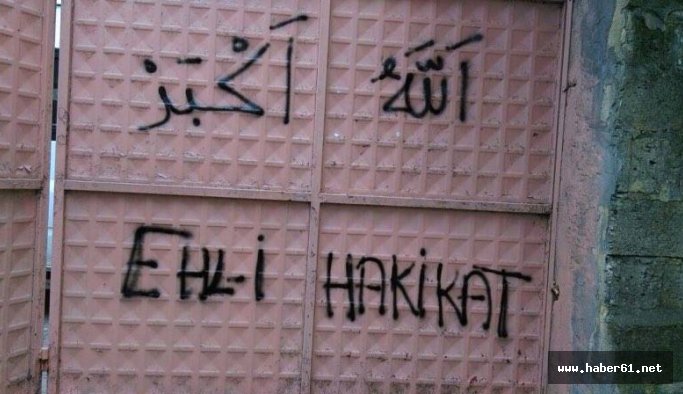 اَللّٰهُ اَكْبَرْ
EHL-İ HAKİKAT
www.haber61.net